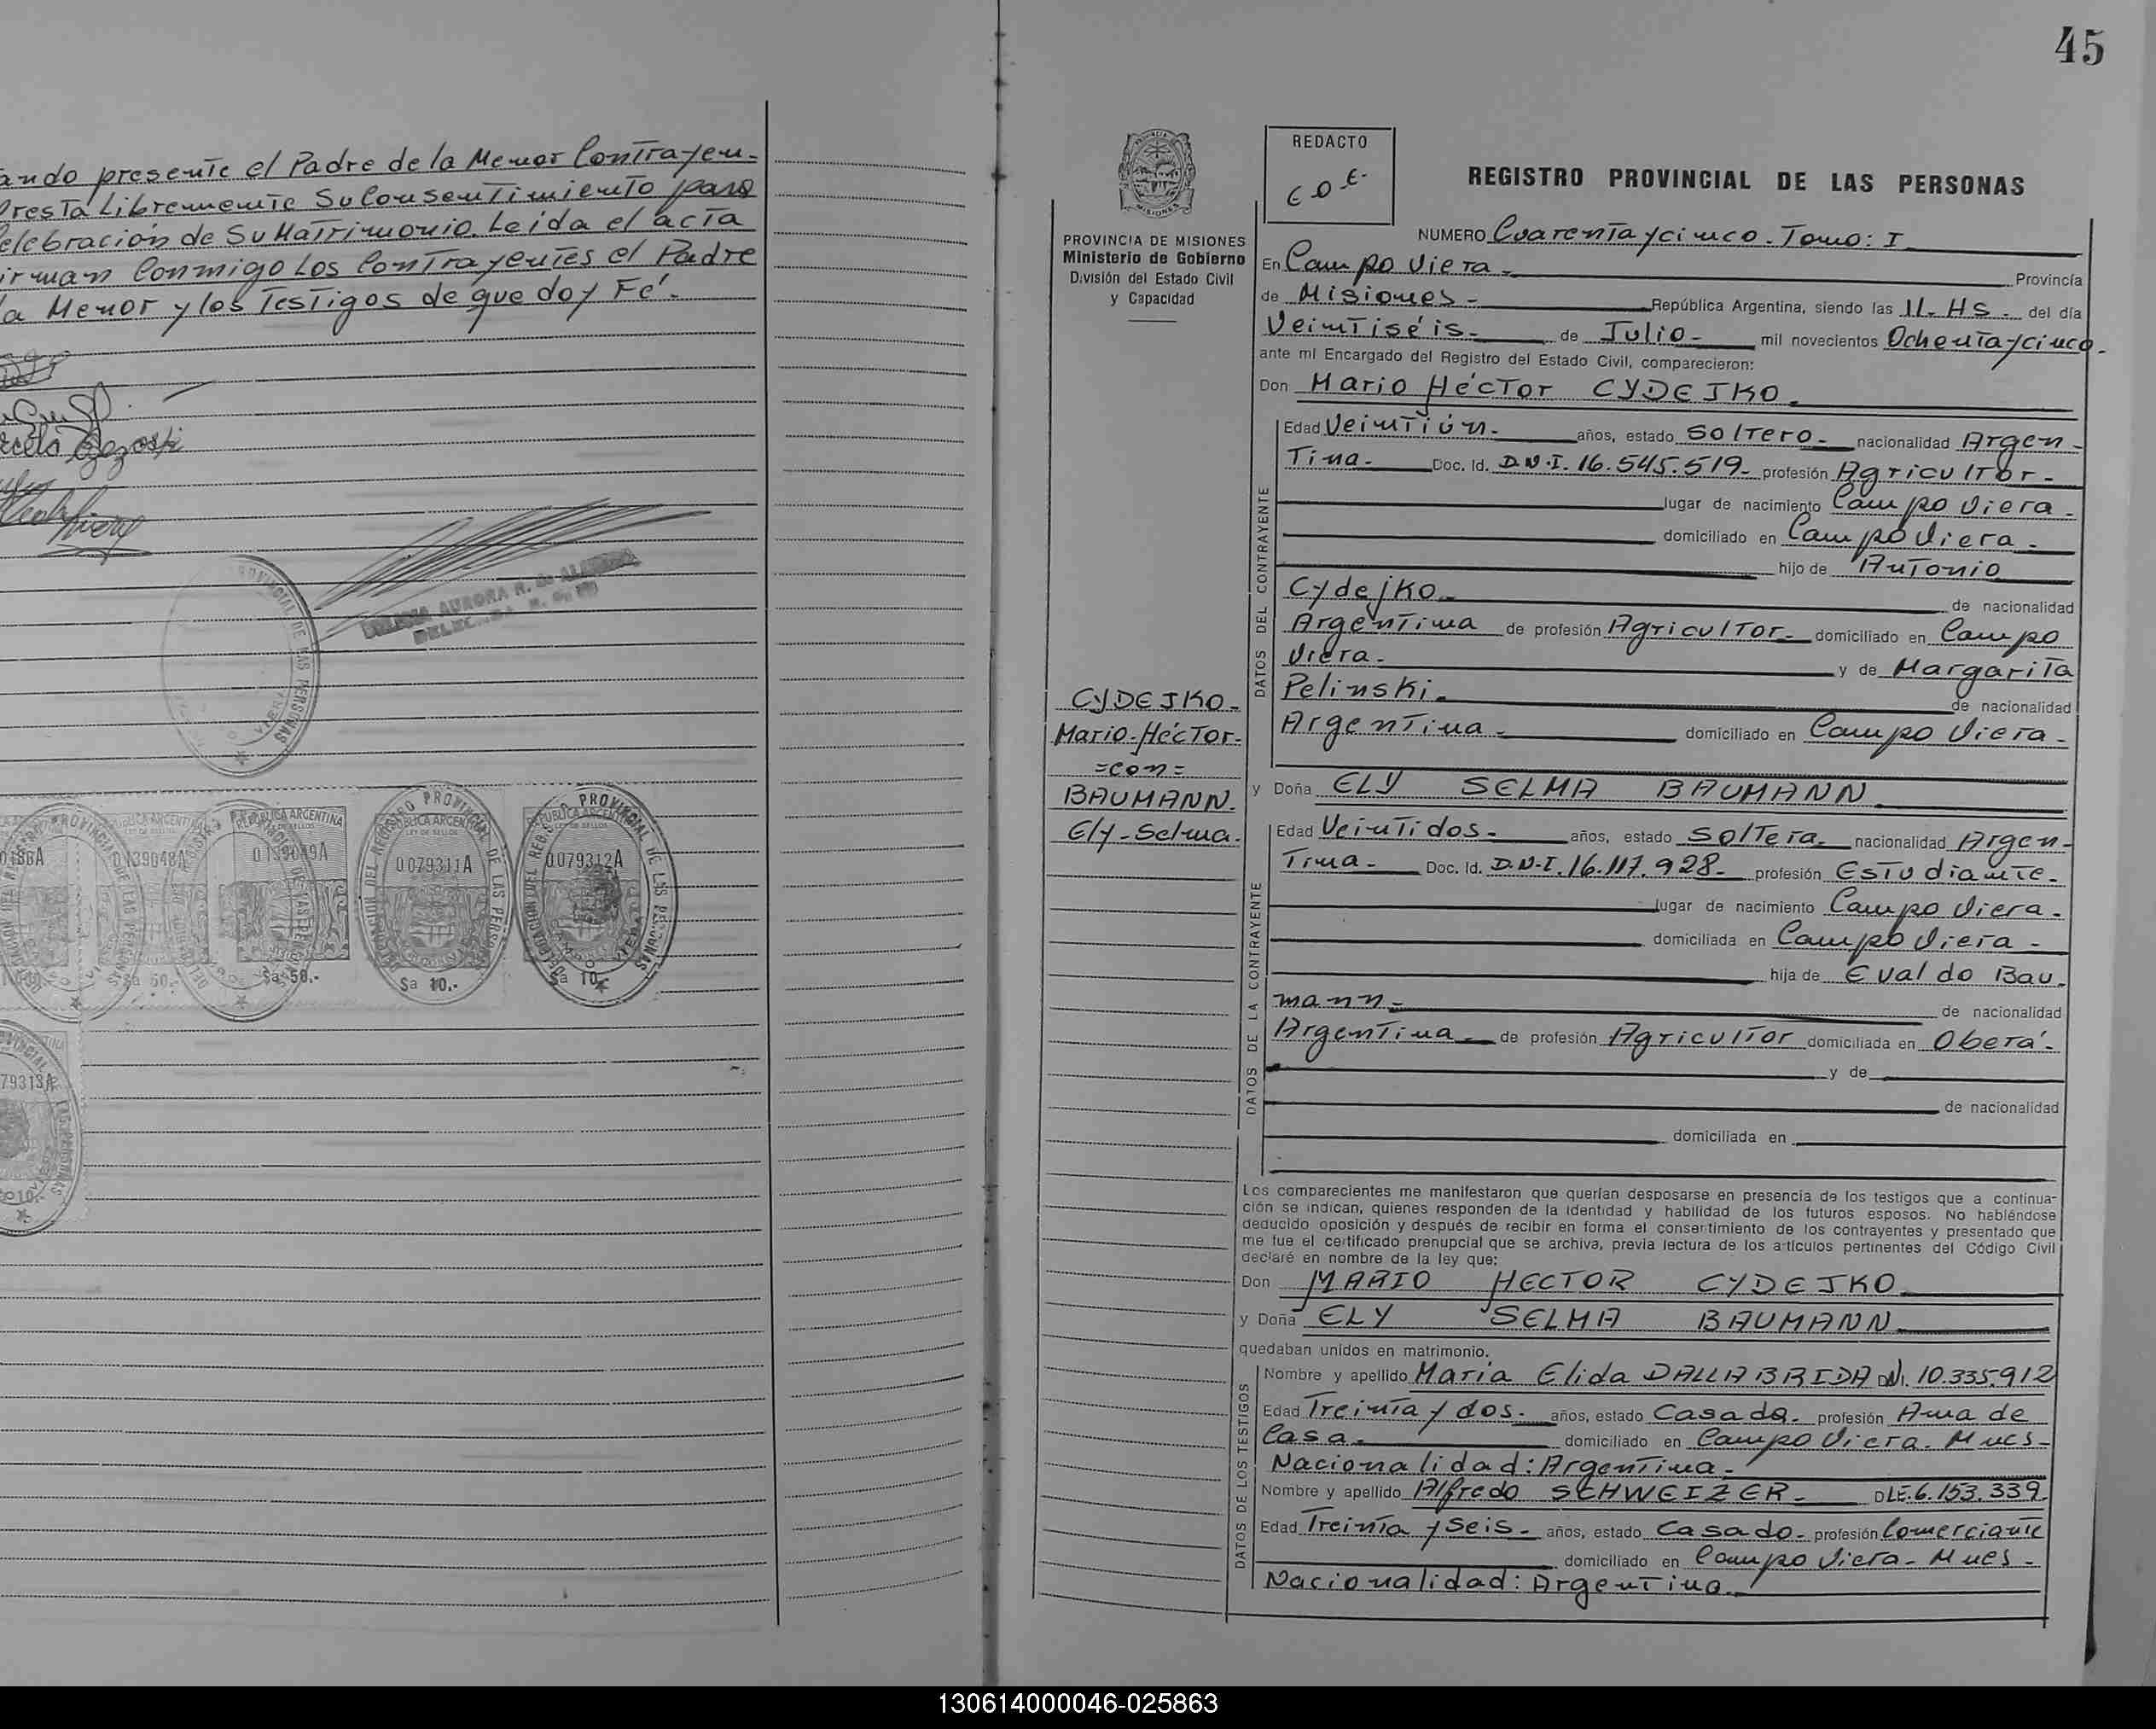 ando presente el Padre de la Menor Contrayen-
Presta Libremente Su Consentimiento para
elebración de Su Matrimonio. Leída el acta
irman Conmigo los Contrayentes el Padre
a Menor y los Testigos de que doy Fé.
AURORA R. de
PROVINCIAL DE LAS PERSONAS
REPUBLICA ARGENTINA
0186A
0139048A
0139049A
0079311A
0079312A
$a 50.-
$a 50.-
$a 10.-
$a 10.-
79313A
45
PROVINCIA DE MISIONES
Ministerio de Gobierno
División del Estado Civil
y Capacidad
CYDEJKO-
Mario-Héctor-
=con=
BAUMANN.
Ely-Selma.
REDACTO
REGISTRO PROVINCIAL DE LAS PERSONAS
NUMERO Cuarenta y cinco. Tomo: I
En Campo Viera. Provincia
de Misiones- República Argentina, siendo las 11-HS- del día
Veintiséis- de Julio- mil novecientos Ochenta y cinco-
ante mí Encargado del Registro del Estado Civil, comparecieron:
Don Mario Héctor CYDEJKO.
DATOS DEL CONTRAYENTE
Edad Veintiún- años, estado Soltero- nacionalidad Argen-
Tina- Doc. Id. D.N.I. 16.545.519- profesión Agricultor-
lugar de nacimiento Campo Viera-
domiciliado en Campo Viera-
hijo de Antonio
Cydejko- de nacionalidad
Argentina de profesión Agricultor- domiciliado en Campo
Viera- y de Margarita
Pelinski- de nacionalidad
Argentina- domiciliado en Campo Viera-
y Doña ELY SELMA BAUMANN
DATOS DE LA CONTRAYENTE
Edad Veintidos- años, estado Soltera- nacionalidad Argen-
Tina- Doc. Id. D.N.I. 16.117.928- profesión Estudiante-
lugar de nacimiento Campo Viera-
domiciliada en Campo Viera-
hija de Evaldo Bau-
mann- de nacionalidad
Argentina- de profesión Agricultor domiciliada en Oberá-
y de
de nacionalidad
domiciliada en
Los comparecientes me manifestaron que querían desposarse en presencia de los testigos que a continua-
ción se indican, quienes responden de la identidad y habilidad de los futuros esposos. No habiéndose
deducido oposición y después de recibir en forma el consertimiento de los contrayentes y presentado que
me fue el certificado prenupcial que se archiva, previa lectura de los artículos pertinentes del Código Civil
declaré en nombre de la ley que:
Don MARIO HECTOR CYDEJKO
y Doña ELY SELMA BAUMANN
quedaban unidos en matrimonio.
DATOS DE LOS TESTIGOS
Nombre y apellido María Elida DALLABRIDA DNI. 10.335.912
Edad Treinta y dos- años, estado Casada- profesión Ama de
Casa- domiciliado en Campo Viera- Mnes-
Nacionalidad: Argentina-
Nombre y apellido Alfredo SCHWEIZER- DLE. 6.153.339
Edad Treinta y Seis- años, estado Casado- profesión Comerciante
domiciliado en Campo Viera- Mnes-
Nacionalidad: Argentina-
130614000046-025863